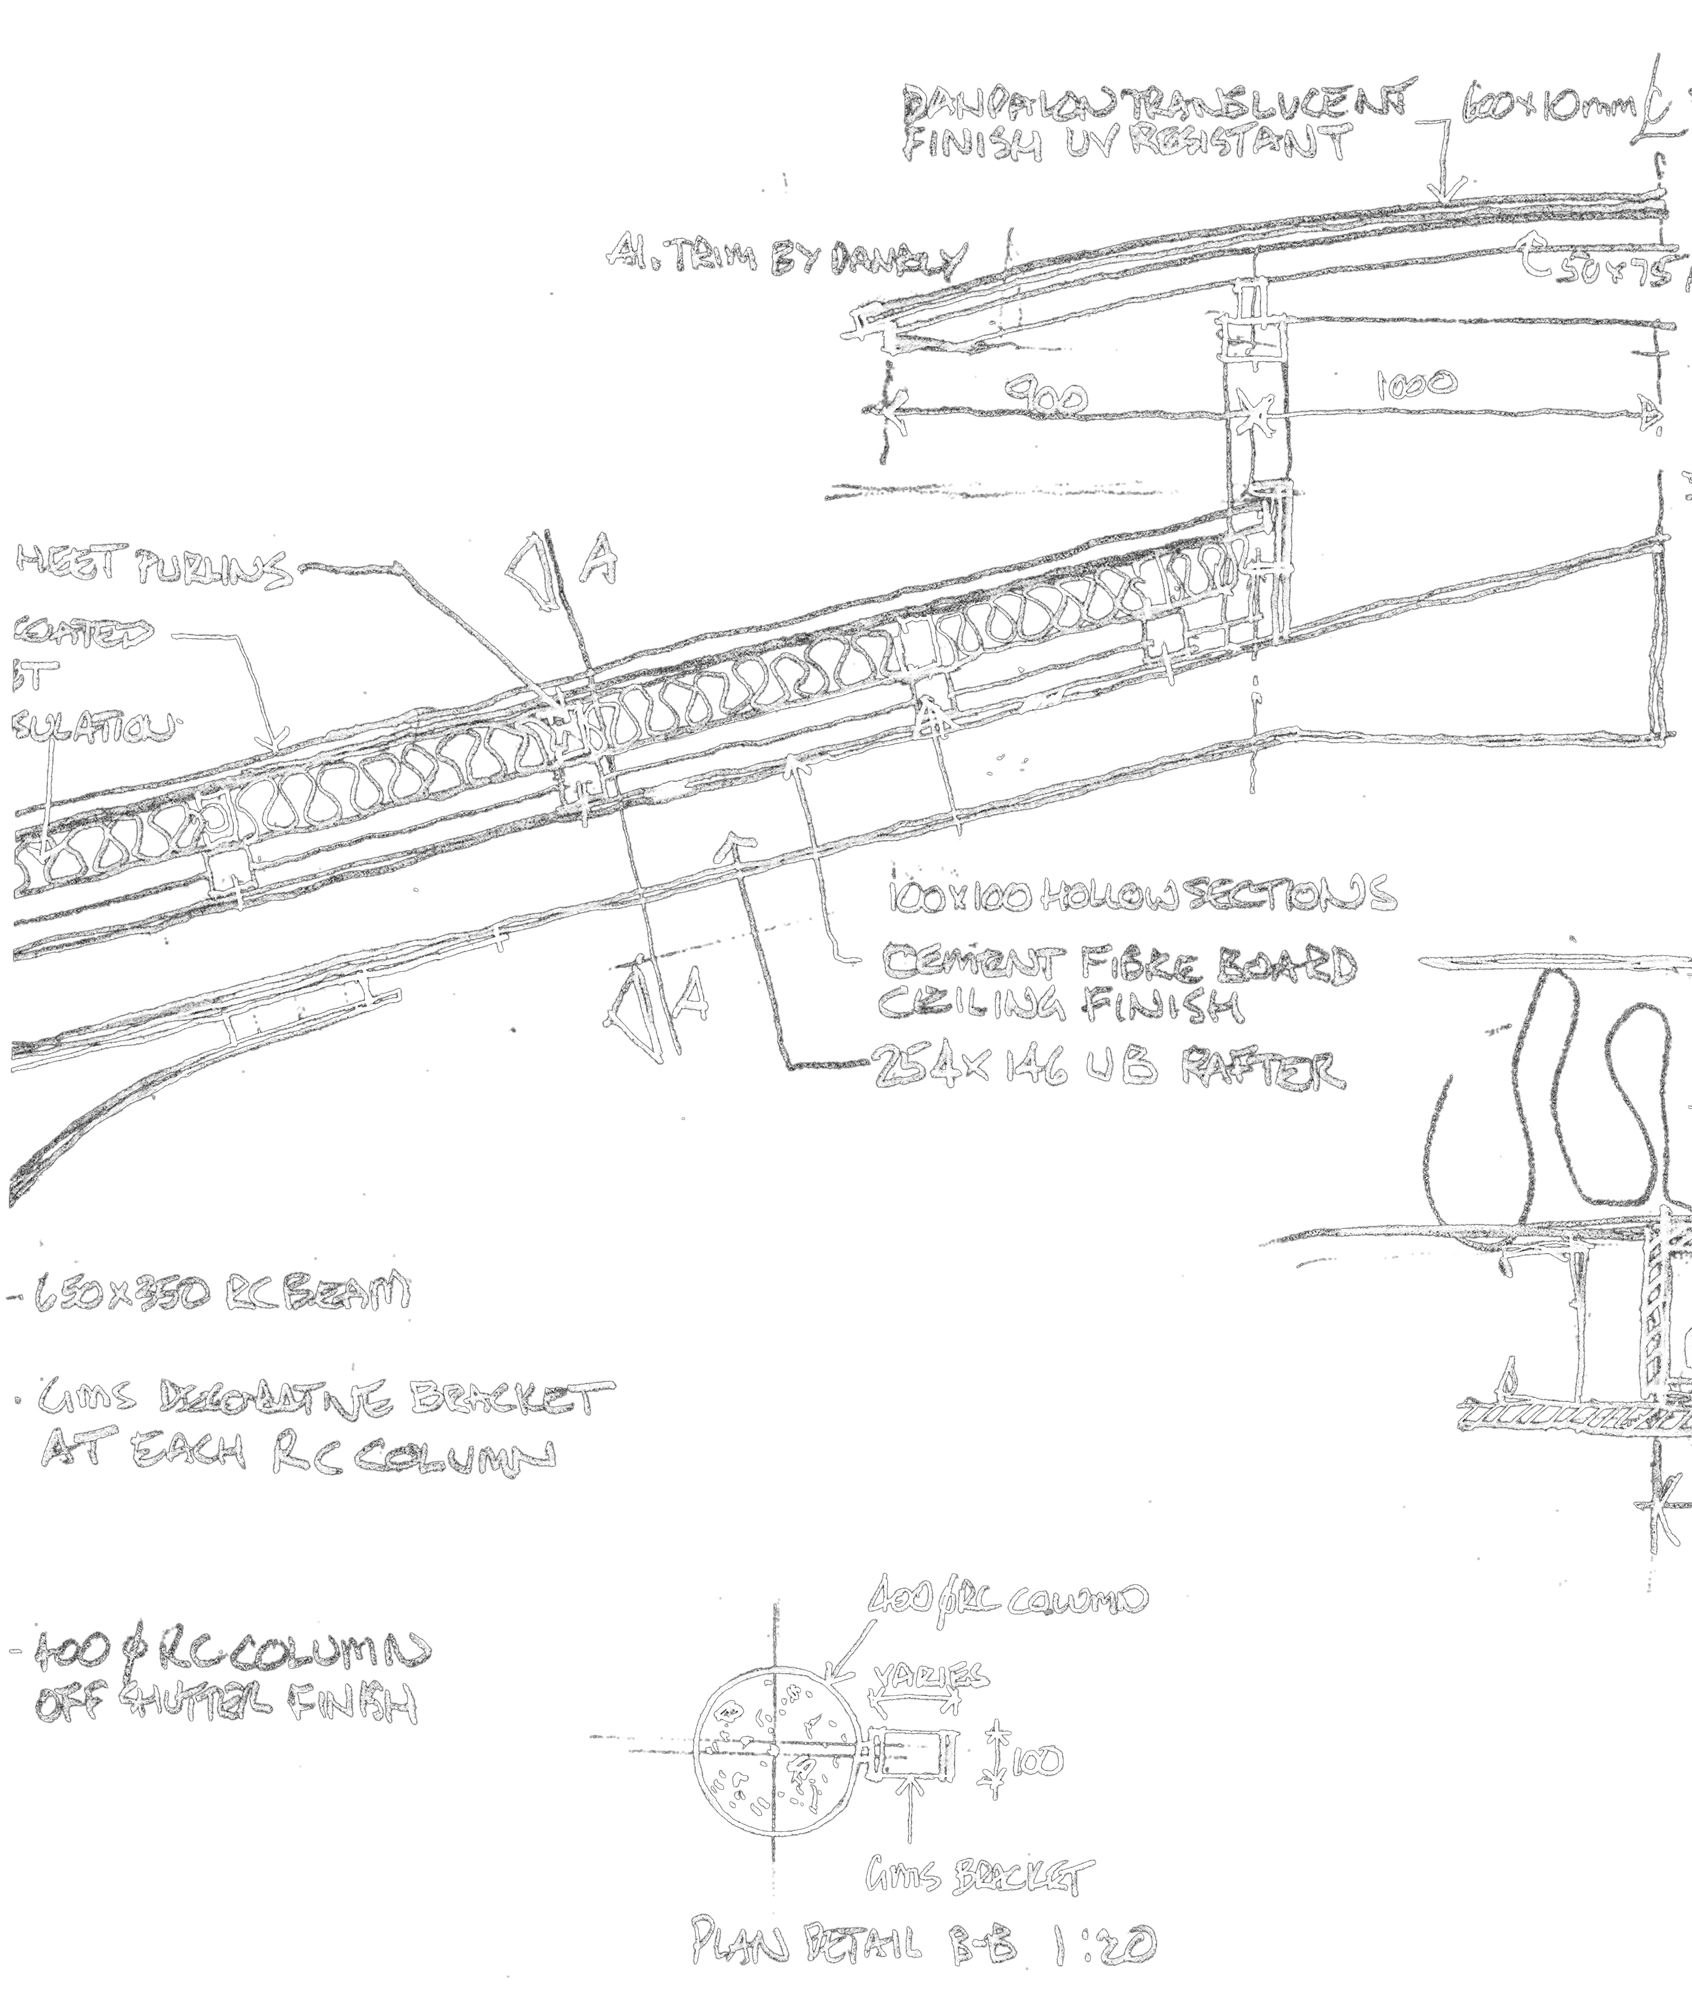 DANPALON TRANSLUCENT 600x10mm ℄
FINISH UV RESISTANT
Al. TRIM BY DANPLY
50x75
900
1000
HEET PURLINS
A
COATED
ET
SULATION
100x100 HOLLOW SECTIONS
CEMENT FIBRE BOARD
CEILING FINISH
A
254x146 UB RAFTER
- 650x350 RC BEAM
. GMS DECORATIVE BRACKET
AT EACH RC COLUMN
400 ϕ RC COLUMN
- 400 ϕ RC COLUMN
OFF SHUTTER FINISH
VARIES
100
GMS BRACKET
PLAN DETAIL B-B 1:20